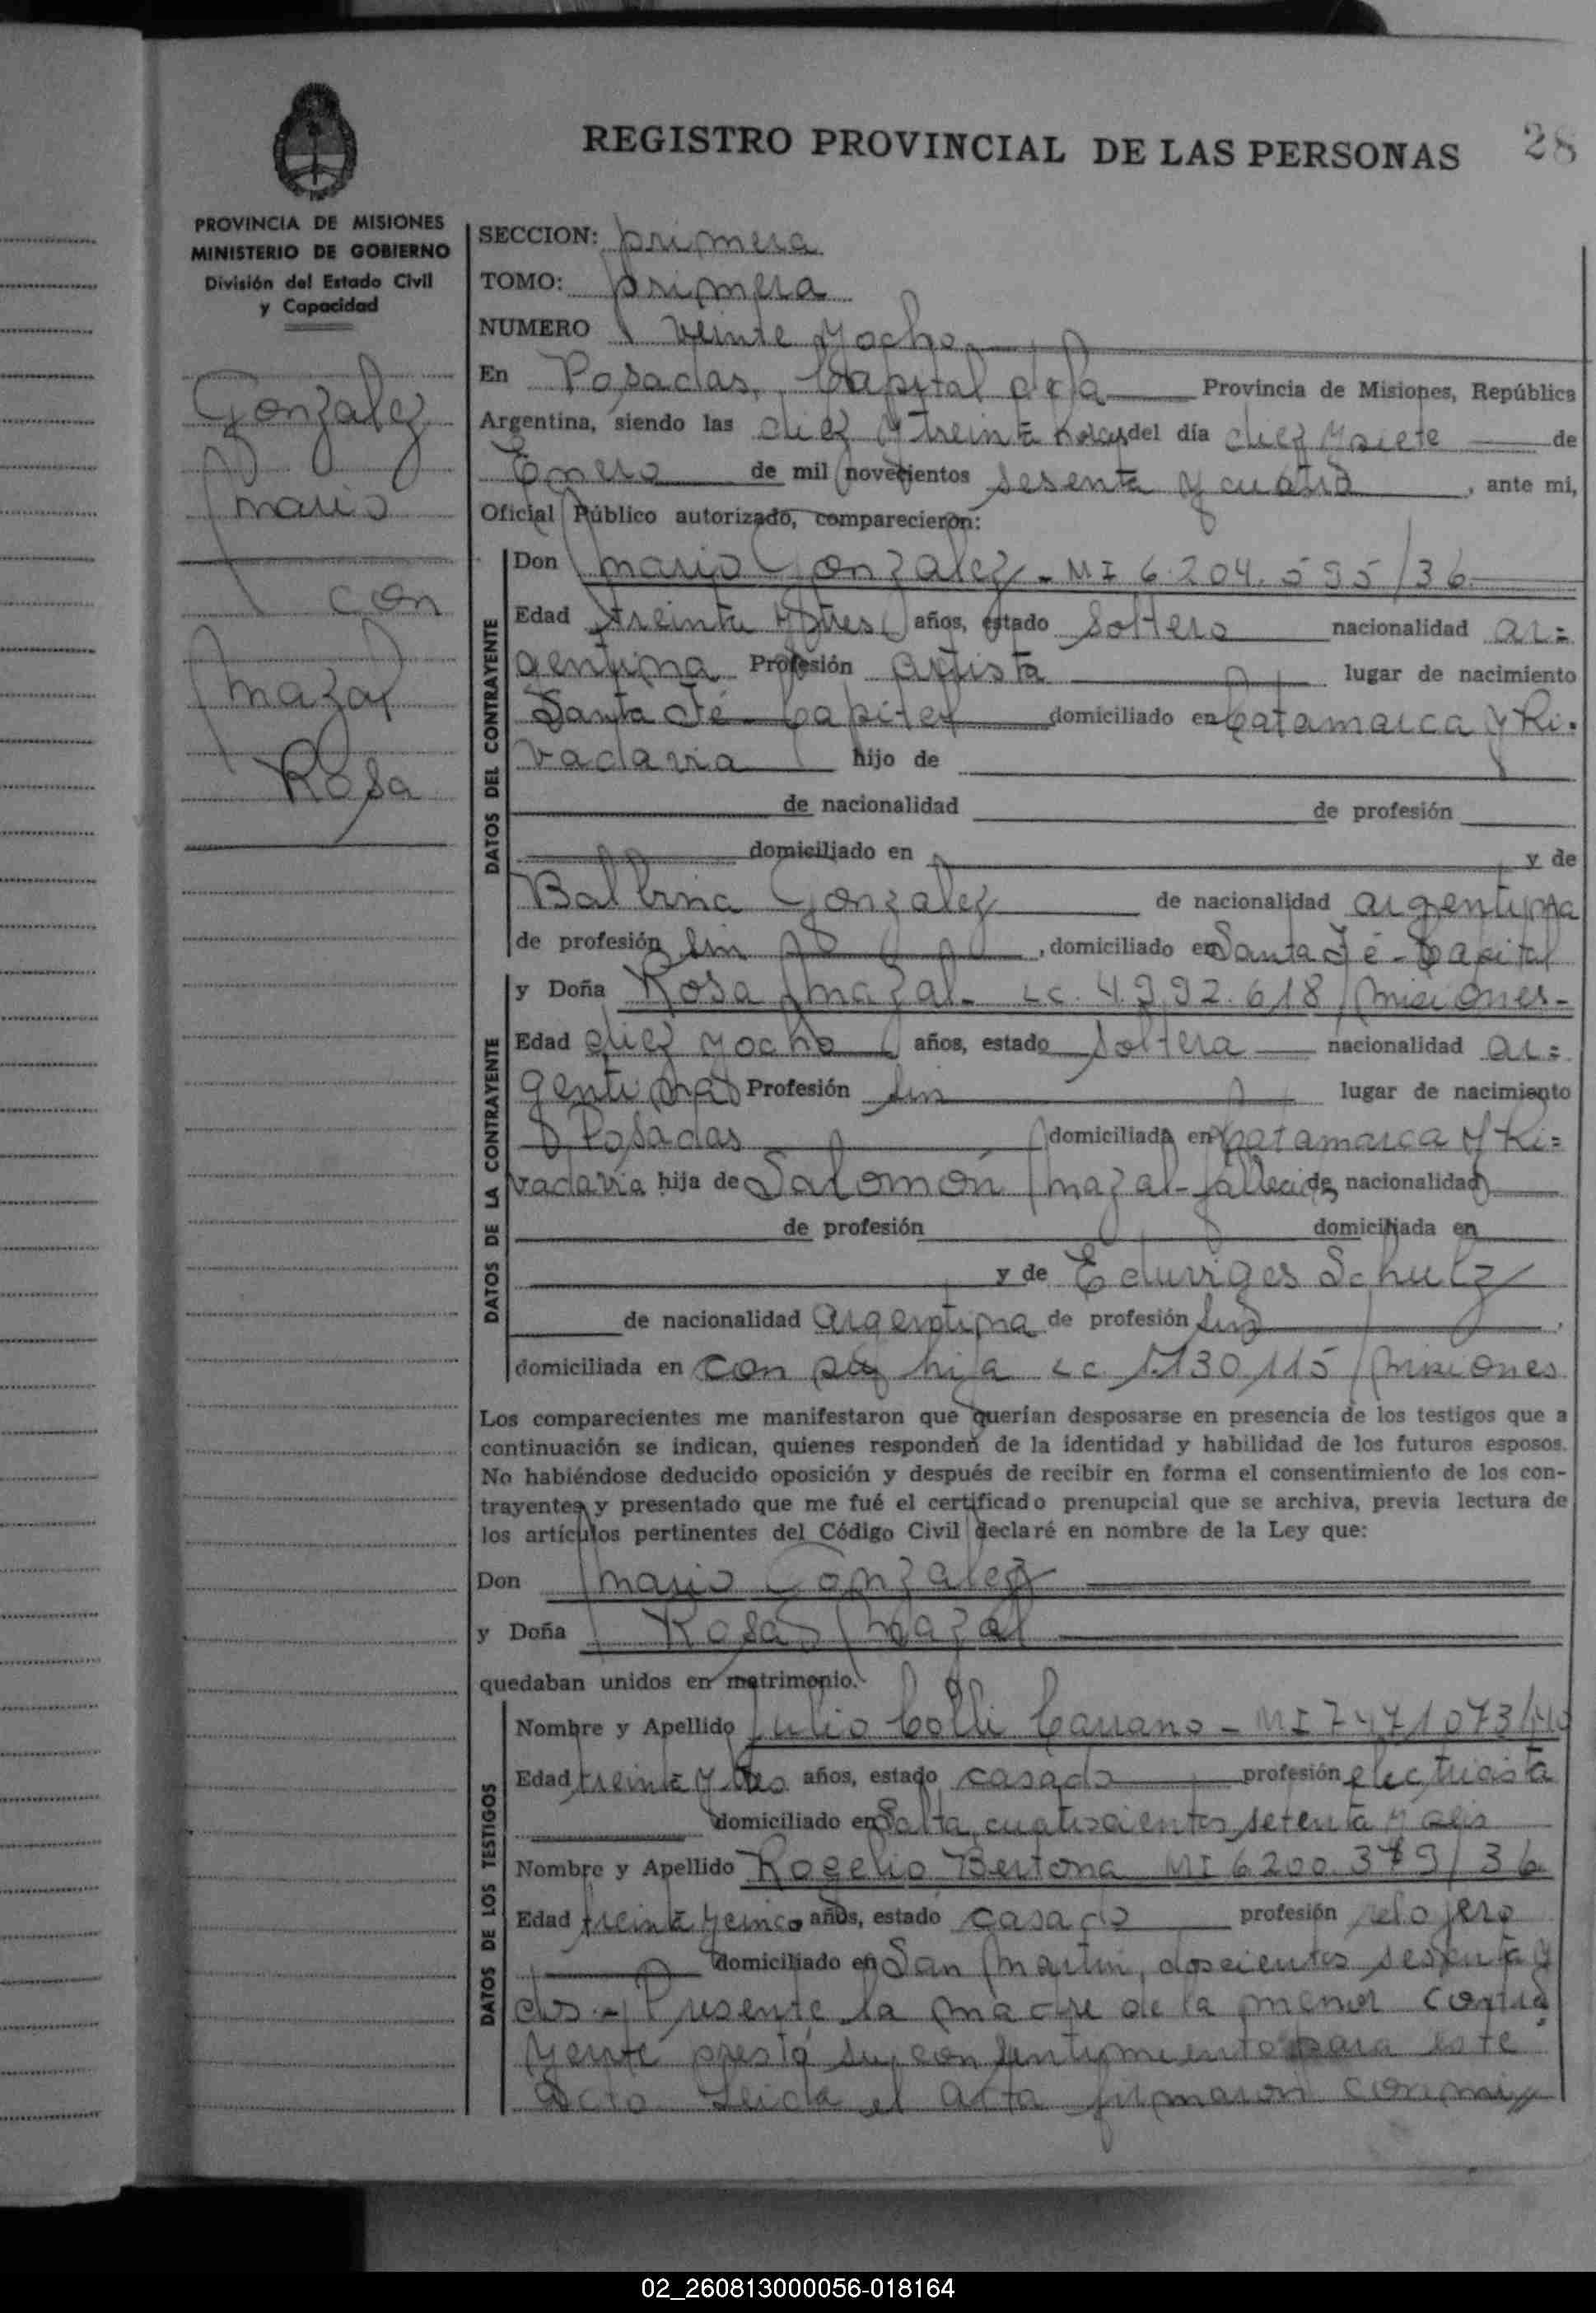 REGISTRO PROVINCIAL DE LAS PERSONAS 28
PROVINCIA DE MISIONES
MINISTERIO DE GOBIERNO
División del Estado Civil
y Capacidad
Gonzalez
Mario
con
Mazal
Rosa
SECCION: primera
TOMO: primera
NUMERO veinte y ocho
En Posadas, Capital de la Provincia de Misiones, República
Argentina, siendo las diez y treinta horas del día diez y siete de
Enero de mil novecientos sesenta y cuatro, ante mi,
Oficial Público autorizado, comparecieron:
DATOS DEL CONTRAYENTE
Don Mario Gonzalez - MI 6.204.595/36
Edad treinta y tres años, estado soltero nacionalidad ar=
gentina Profesión artista lugar de nacimiento
Santa Fé - Capital domiciliado en Catamarca y Ri-
vadavia hijo de
de nacionalidad de profesión
domiciliado en y de
Balbina Gonzalez de nacionalidad argentina
de profesión sin, domiciliado en Santa Fé - Capital
DATOS DE LA CONTRAYENTE
y Doña Rosa Mazal - LC. 4.992.618/Misiones-
Edad diez y ocho años, estado soltera nacionalidad ar=
gentina Profesión sin lugar de nacimiento
Posadas domiciliada en Catamarca y Ri=
vadavia hija de Salomón Mazal - fallecido de nacionalidad
de profesión domiciliada en
y de Eduviges Schulz
de nacionalidad argentina de profesión sin,
domiciliada en con su hija LC. 1.130.115/Misiones
Los comparecientes me manifestaron que querían desposarse en presencia de los testigos que a
continuación se indican, quienes responden de la identidad y habilidad de los futuros esposos.
No habiéndose deducido oposición y después de recibir en forma el consentimiento de los con-
trayentes y presentado que me fué el certificado prenupcial que se archiva, previa lectura de
los artículos pertinentes del Código Civil declaré en nombre de la Ley que:
Don Mario Gonzalez
y Doña Rosa Mazal
quedaban unidos en matrimonio.
DATOS DE LOS TESTIGOS
Nombre y Apellido Julio Colli - MI 7471073/40
Edad treinta y años, estado casado profesión electricista
domiciliado en Salta, cuatrocientos setenta y seis
Nombre y Apellido Rogelio Bertona MI 6.200.379/36
Edad treinta y cinco años, estado casado profesión relojero
domiciliado en San Martin, doscientos sesenta y
dos - Presente la madre de la menor contra
yente presta su consentimiento para este
acto. Leida el acta firmaron conmigo
02_260813000056-018164